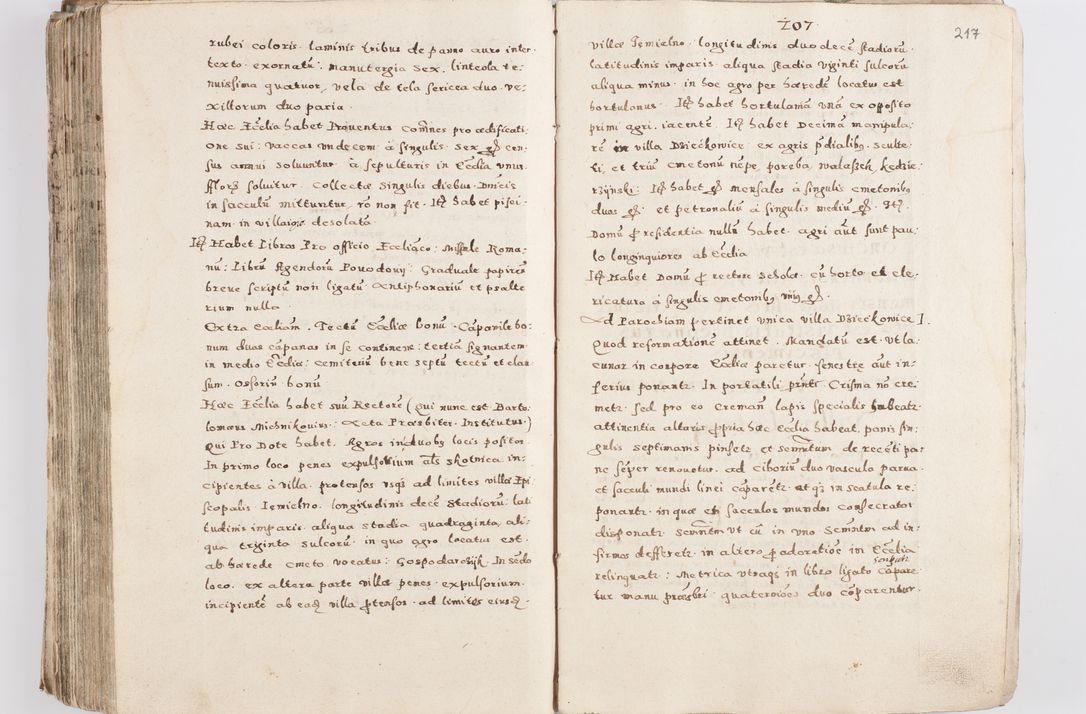 rubei coloris. laminis tribus de panno auro inter
texto. exornatū. manutergia sex. linteola te
nuissima quatuor. vela de tela sericea duo. ve
xillorum duo paria.
Hæc Ecclia habet Prouentus Comīnes pro ædificati
one sui: Vaccas vndecem à singulis. sex gr cen
sus annui soluuntur à sepulturis in Ecclia vnus
florz soluitur. Collectæ singulis diebus Dnicis
in sacculū mittuntur, rō non fit. Itȝ habet pisci
nam in villa desolatā.
Itȝ Habet Libros Pro officio Eccliaco: Missale Roma
nū: Librū Agendorū Pouodouij: Graduale papireū
breue scriptū non ligatū. Antiphonariū et psalte
rium nulla.
Extra ecaliam. Tectū Eccliæ bonū. Cāpanile bo
num duas cāpanas in se continens: tertiā signantem
in medio Eccliæ: Cemiteriū bene septū tectū et clau
sum. Ossoriū bonū
Hæc Ecclia habet suū Rectorē (qui nunc est Barto
lomæus Michnikouius: Acta Præsbiter. Institutus.)
qui Pro Dote habet. Agros in duobȝ locis positos.
In primo loco penes expulsorium als skotnica in
cipientes à villa. protensos vsqȝ ad limites villæ Epi
scopalis. Iemielno. longitudinis decē stadiorū: lati
tudinis imparis. aliqua stadia quadraginta, ali
qua triginta sulcorū. in quo agro locatus est
ab hærede cmeto vocatus: Gospodarczijk. In secdo
loco. ex altera parte villæ penes expulsorium.
incipientē ab eadȝ villa ptensos. ad limites eiusdȝ

207. 217
villæ Jemielno. longitudinis duodecē stadiorū.
latitudinis imparis. aliqua stadia viginti sulcorū
aliqua minus. in hoc agro per hæredē locatus est
hortulanus. Itȝ habet hortulanā vnā ex opposito
primi agri. iacentē. Itȝ habet Decimā manipula
rē in villa Dzieckowice ex agris pdialibȝ. sculte
ti, et triū cmetonū nēpe poreba, walaszek, kędzie
rzijnski: Itȝ habet gr mensales à singulis cmetonibȝ
duos gr: et petronaliū à singulis mediū gr. Itȝ.
Domū p residentia nullū habet. agri aūt sunt pau
lo longinquiores ab Ecclia
Itȝ Habet Domū p rectore scholæ. cū horto et cle
ricatura à singulis cmetonibȝ gr.
Ad Parochiam pertinet vnica villa Dzieckowice].
Quod reformationē attinet. Mandatū est. vt la
cunar in corpore Eccliæ paretur. fenestræ aut in
ferius ponantr. In portatili pnti Crisma nō cre
metr. sed pro eo cremañ lapis specialis habeatr.
attinentia altaris ppria hæc Ecclia habeat. panis sin
gulis septimanis pinsetr et semntum de recēti pa
ne sēper renouetur. ad ciborium duo vascula parua.
et sacculi mundi linei cāparētr. et qȝ in scatula re
ponantr. in quæ est sacculos mundos Consecrator
disponatr. semntm vt cū in vno semntm ad in
firmos defferetr. in altero p adoratiōe in Ecclia
relinquatr: Metrica vtraqȝ in libro ligato scriptr cāpare
tur manu præsbri. quaterniōes duo cōparentur.